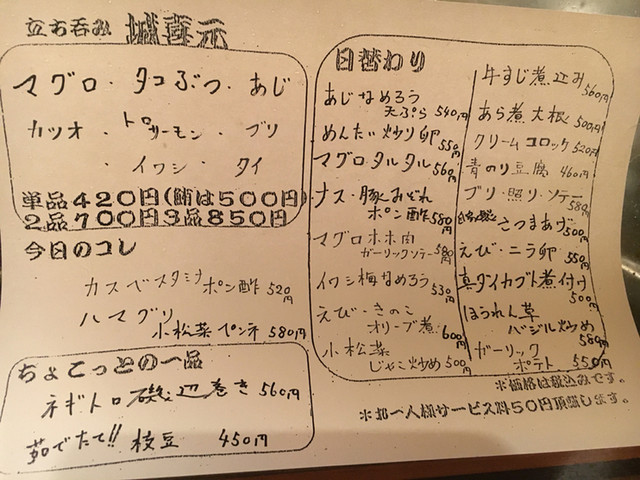 立ち呑み 城喜元
マグロ・タコぶつ・あじ
カツオ・トロサーモン・ブリ
・イワシ・タイ
単品420円(鮪は500円)
2品700円3品850円
今日のコレ
カスベスタミナポン酢520円
ハマグリ
小松菜ペンネ580円
ちょこっとの一品
ネギトロ磯辺巻き560円
茹でたて!!枝豆 450円
日替わり
あじなめろう
天ぷら540円
めんたい炒り卵550円
マグロタルタル560円
ナス・豚みぞれ
ポン酢580円
マグロホホ肉
ガーリックソテー580円
イワシ梅なめろう530円
えび・きのこ
オリーブ煮600円
小松菜
じゃこ炒め500円
牛すじ煮込み560円
あら煮大根500円
クリームコロッケ520円
青のり豆腐460円
ブリ・照り・ソテー580円
さつまあげ500円
えび・ニラ卵550円
真ダイカブト煮付け500円
ほうれん草
バジル炒め580円
ガーリック
ポテト550円
※価格は税込みです。
※お一人様サービス料50円頂戴します。